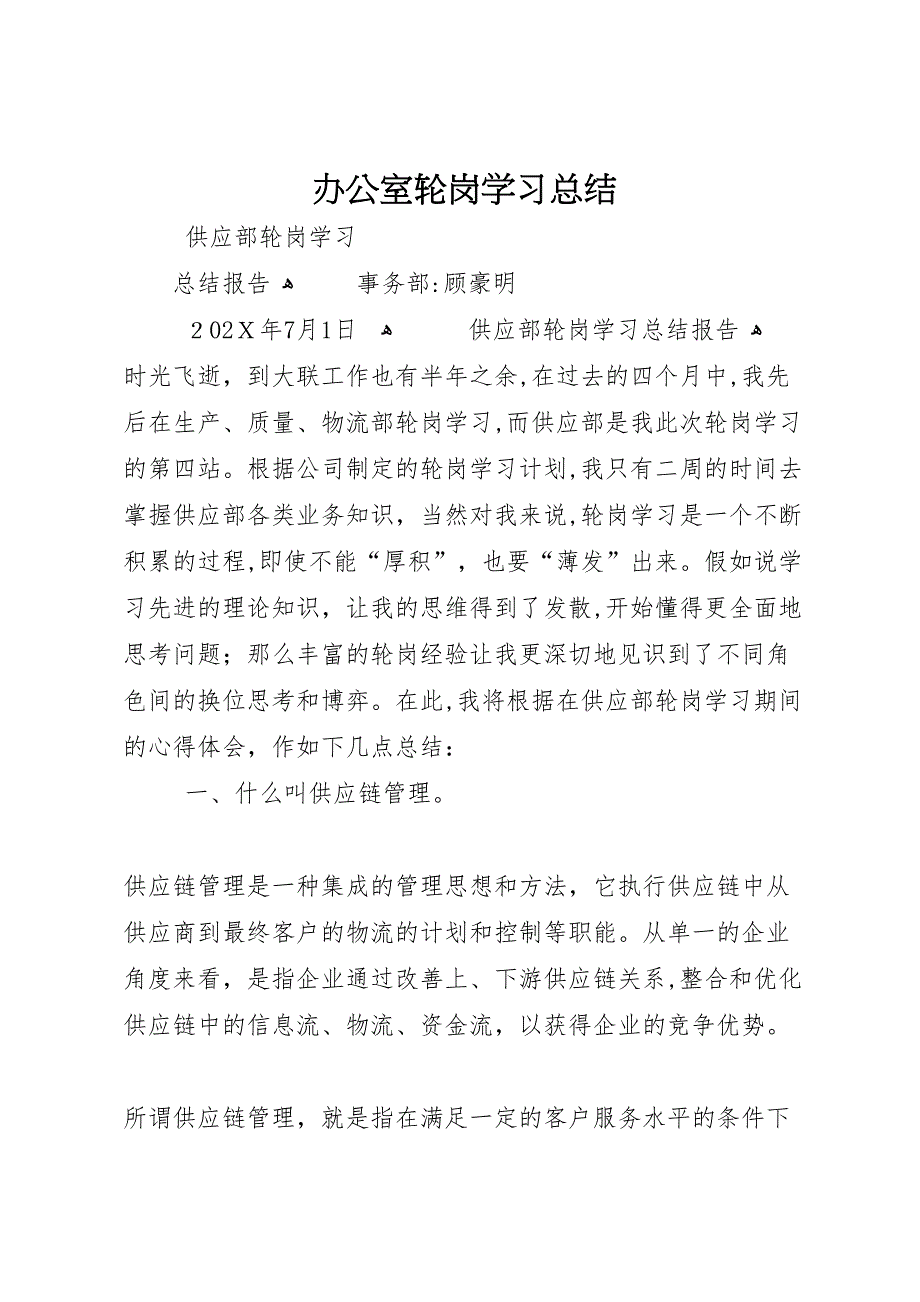 办公室轮岗学习总结
供应部轮岗学习
总结报告 ﻫ 事务部:顾豪明
202X年7月1日 ﻫ 供应部轮岗学习总结报告 ﻫ
时光飞逝，到大联工作也有半年之余,在过去的四个月中,我先
后在生产、质量、物流部轮岗学习,而供应部是我此次轮岗学习
的第四站。根据公司制定的轮岗学习计划,我只有二周的时间去
掌握供应部各类业务知识，当然对我来说,轮岗学习是一个不断
积累的过程,即使不能“厚积”，也要“薄发”出来。假如说学
习先进的理论知识，让我的思维得到了发散,开始懂得更全面地
思考问题；那么丰富的轮岗经验让我更深切地见识到了不同角
色间的换位思考和博弈。在此,我将根据在供应部轮岗学习期间
的心得体会，作如下几点总结：
一、什么叫供应链管理。
供应链管理是一种集成的管理思想和方法，它执行供应链中从
供应商到最终客户的物流的计划和控制等职能。从单一的企业
角度来看，是指企业通过改善上、下游供应链关系,整合和优化
供应链中的信息流、物流、资金流，以获得企业的竞争优势。
所谓供应链管理，就是指在满足一定的客户服务水平的条件下